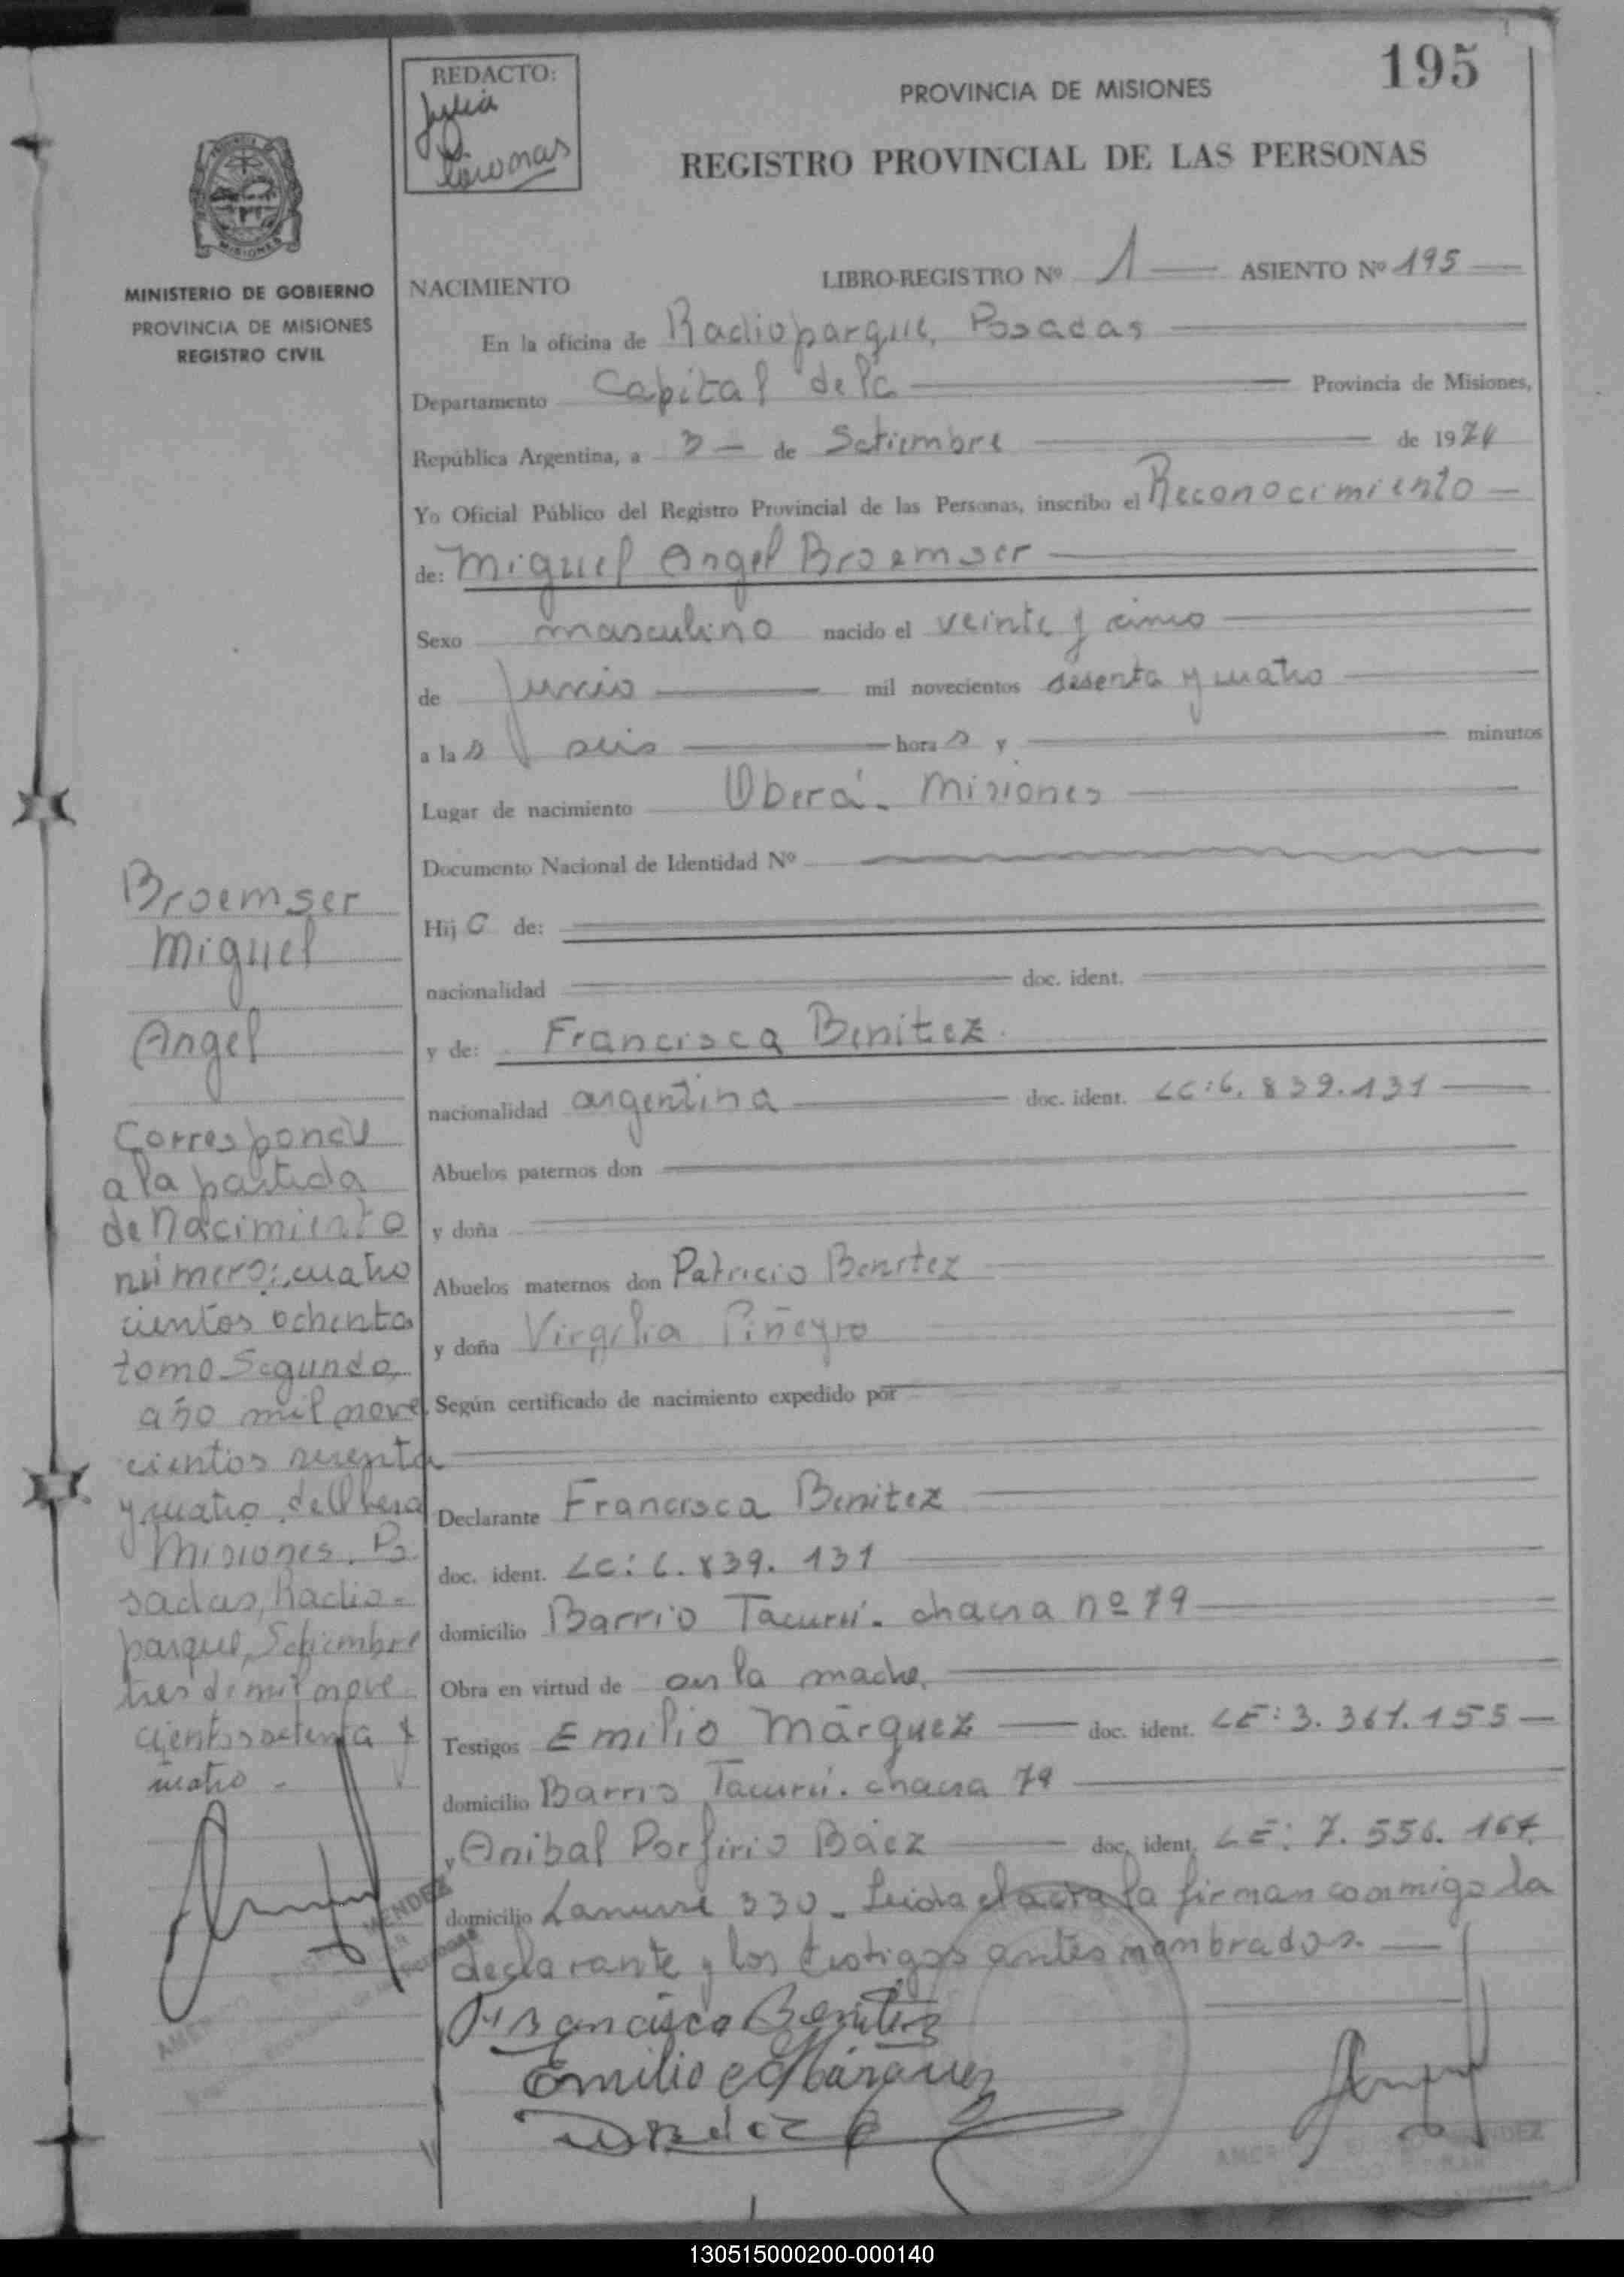 195
REDACTO:
Julia
PROVINCIA DE MISIONES
REGISTRO PROVINCIAL DE LAS PERSONAS
MISIONES
MINISTERIO DE GOBIERNO
PROVINCIA DE MISIONES
REGISTRO CIVIL
NACIMIENTO LIBRO-REGISTRO Nº 1 ASIENTO Nº 195
En la oficina de Radioparque, Posadas
Departamento Capital de la Provincia de Misiones,
República Argentina, a 3 de Setiembre de 1974
Yo Oficial Público del Registro Provincial de las Personas, inscribo el Reconocimiento
de: Miguel Angel Broemser
Sexo masculino nacido el veinte y cinco
de Junio mil novecientos sesenta y cuatro
a las seis horas y minutos
Lugar de nacimiento Oberá - Misiones
Documento Nacional de Identidad Nº
Hijo de:
nacionalidad doc. ident.
y de: Francisca Benitez
nacionalidad argentina doc. ident. LC: 6.839.131
Abuelos paternos don
y doña
Abuelos maternos don Patricio Benitez
y doña Virgilia Piñeyro
Según certificado de nacimiento expedido por
Declarante Francisca Benitez
doc. ident. LC: 6.839.131
domicilio Barrio Tacurú - chacra nº 79
Obra en virtud de ser la madre,
Testigos Emilio Márquez doc. ident. LE: 3.361.155
domicilio Barrio Tacurú. chacra 79
y Anibal Porfirio Báez doc. ident. LE: 7.556.164
domicilio Lanusse 330 - Leida el acta la firman conmigo la
declarante y los testigos antes nombrados.
Francisca Benitez
Emilio Márquez
Broemser
Miguel
Angel
Corresponde
a la partida
de Nacimiento
número: cuatro
cientos ochenta
tomo Segundo,
año mil nove
cientos sesenta
y cuatro de Obera
Misiones. Po
sadas, Radio-
parque, Setiembre
tres de mil nove
cientos setenta y
cuatro -
MENDEZ
130515000200-000140